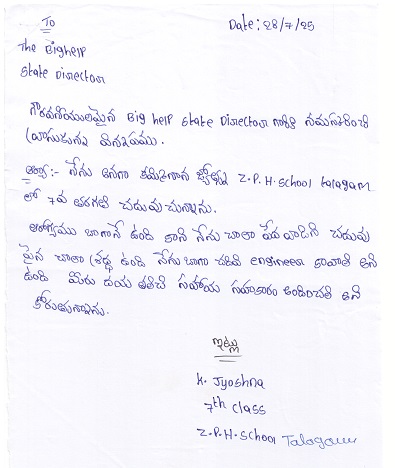 To
Date: 28/7/25
The Bighelp
State Director
గౌరవనీయులమైన Big help State Director గారికి నమస్కరించి
వ్రాసుకున్న విన్నపము.
ఆర్యా:- నేను అనగా జ్యోత్స్న Z.P.H.School talagam
లో 7వ తరగతి చదువుచున్నాను.
ఆరోగ్యము బాగానే ఉంది కాని నేను చాలా పేద వాడిని చదువు
పైన చాలా శ్రద్ధ ఉంది నేను బాగా చదివి engineer కావాలి అని
ఉంది మీరు దయ తలిచి సహాయ సహకారం అందించాలి అని
కోరుతున్నాను.
ఇట్లు
K. Jyoshna
7th class
Z.P.H.School Talagam